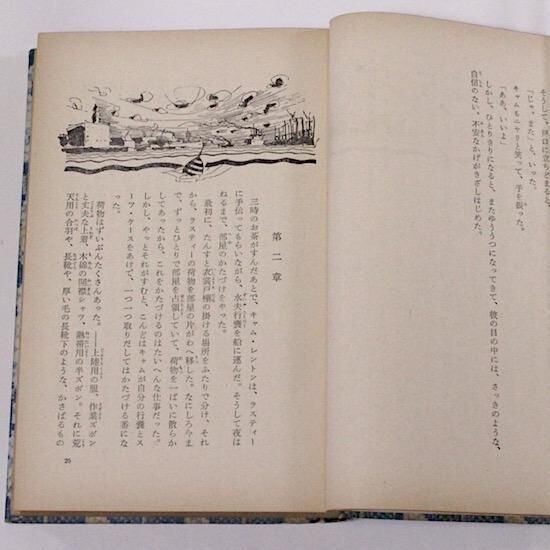 そうして、戸口に立ちどまると、
「じゃ、また」と、いった。
キャムもニヤリと笑って、手を振った。
「ああ、いいよ」
しかし、ひとりきりになると、またゆううつになってきて、彼の目の中には、さっきのような、
自信のない、不安なかげがきざしはじめた。
第二章
三時のお茶がすんだあとで、キャム・レントンは、ラスティー
に手伝ってもらいながら、水夫行嚢を船に運んだ。そうして夜は
ねるまで、部屋のかたづけをやった。
最初に、たんすと衣裳戸棚の掛ける場所をふたりで分け、それ
から、ラスティーの荷物を部屋の片がわへ移した。なにしろ今ま
で、ずっとひとりで部屋を占領していて、荷物を一ぱいに散らか
してあったから、これをかたづけるのはたいへんな仕事だった。
しかし、やっとそれがすむと、こんどはキャムが自分の行嚢とス
ーツ・ケースをあけて、一つ一つ取りだしてはかたづける番にな
った。
荷物はずいぶんたくさんあった。――上陸用の服、作業ズボン
と丈夫な上着、木綿の開襟シャツ、熱帯用の半ズボン。それに荒
天用の合羽や、長靴や、厚い毛の長靴下のような、かさばるもの
25